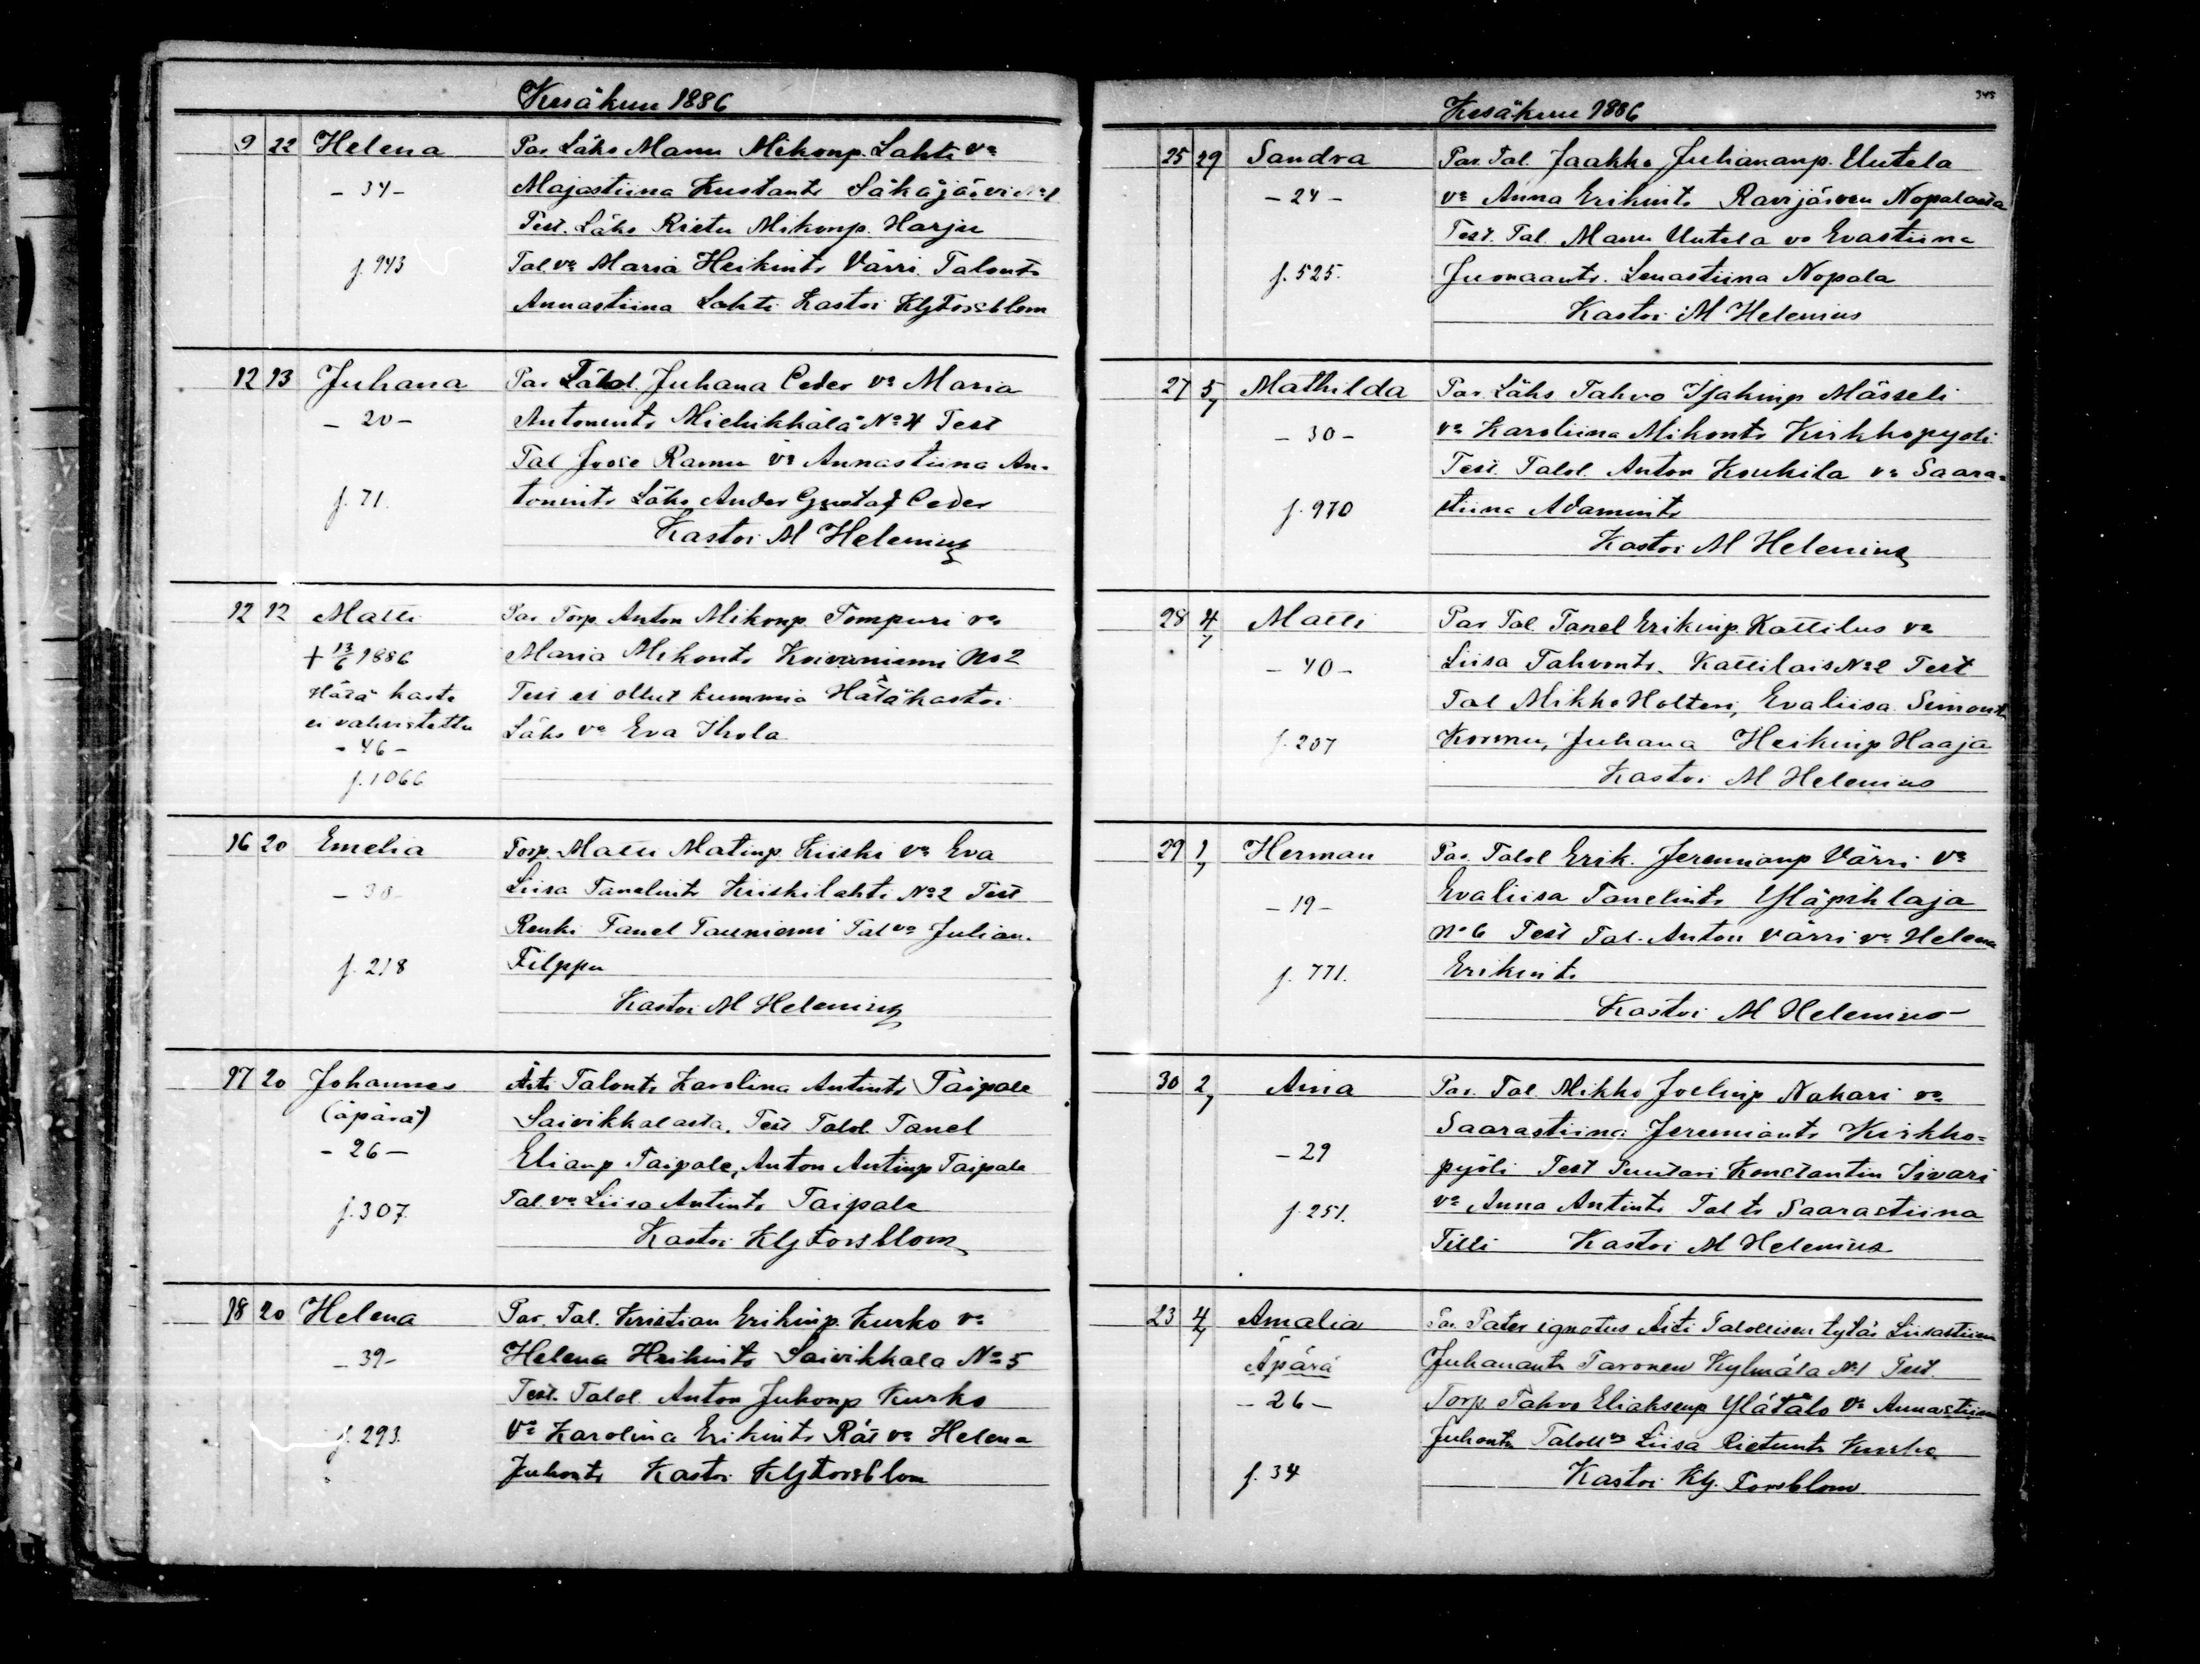 Kesäkuu 1886
9 22 Helena Par. Läks Manu Mikonp. Lahti va
- 34 - Majastiina Kustants Säkäjärvi No 1
Test. Läks Rietu Mikonp. Harju
f. 943 Tal va Maria Heikints Värri Talonts
Annastiina Lahti Kastoi Klj Forsblom
12 13 Juhana Par Talol. Juhana Ceder va Maria
- 20 - Antonints Miehikkälä No 4 Test
Tal Joose Ramu va Annastiina An-
f. 71. tonints Läks Ander Gustaf Ceder
Kastoi M Helenius
12 12 Matti Par Torp. Anton Mikonp. Tompuri va
+ 13/6 1886 Maria Mikonts Koivuniemi No 2
Hätä kaste Test ei ollut kummia Hätäkastoi
ei vahvistettu Läks va Eva Ihola
- 46 -
f. 1066
16 20 Emelia Torp. Matti Matinp. Kiiski va Eva
- 30 - Liisa Tanelints Kiiskilahti No 2 Test
Renki Tanel Tauniemi Tal va Julian.
f. 218 Filppu
Kastoi M Helenius
17 20 Johannes Äiti Talonts Karolina Antints Taipale
(äpärä) Saivikkalasta. Test Talol. Tanel
- 26 - Elianp Taipale, Anton Antinp Taipale
f. 307. Tal. va Liisa Antints Taipale
Kastoi Klj Forsblom
18 20 Helena Par. Tal. Kristian Erikinp. Kurko va
- 39 - Helena Heikints Saivikkala No 5
Test. Talol Anton Juhonp Kurko
f. 293. va Karolina Erikints Rät va Helena
Juhonts Kastoi Klj Forsblom
345
Kesäkuu 1886
25 29 Sandra Par. Tal. Jaakko Juhananp. Uutela
- 24 - va Anna Erikints Ravijärven Nopalasta
Test. Tal. Manu Uutela va Evastiina
f. 525. Juonaants. Lenastiina Nopala
Kastoi M Helenius
27 5/7 Mathilda Par. Läks Tahvo Isakinp Mässeli
- 30 - va Karoliina Mikonts Kirkkopyöli
Test. Talol. Anton Kouhila va Saara-
f. 970 stiina Adamints
Kastoi M Helenius
28 4/7 Matti Par Tal Tanel Erikinp. Kattilus va
- 40 - Liisa Tahvonts. Kattilais No 2 Test
Tal Mikko Holteri, Evaliisa Simonts
f. 207 Kormu, Juhana Heikinp Haaja
Kastoi M Helenius
29 1/7 Herman Par. Talol Erik. Jeremianp Värri va
- 19 - Evaliisa Tanelints Yläpihlaja
No 6 Test Tal. Anton Värri va Helena
f. 771. Erikints
Kastoi M Helenius
30 2/7 Aina Par. Tal. Mikko Joelinp Nahari va
Saarastiina Jeremiants Kirkko-
- 29 pyöli Test Suutari Konstantin Sivari
f. 251. va Anna Antints Tal ts Saarastiina
Tilli Kastoi M Helenius
23 4/7 Amalia Par. Pater ignotus Äiti Talollisen tytär Liisastiina
Äpärä Juhanants Taronen Kylmälä No 1 Test.
- 26 - Torp. Tahvo Eliaksenp Ylätalo va Annastiina
Juhonts Talol va Liisa Rietunts Kurko
f. 34 Kastoi Klj. Forsblom